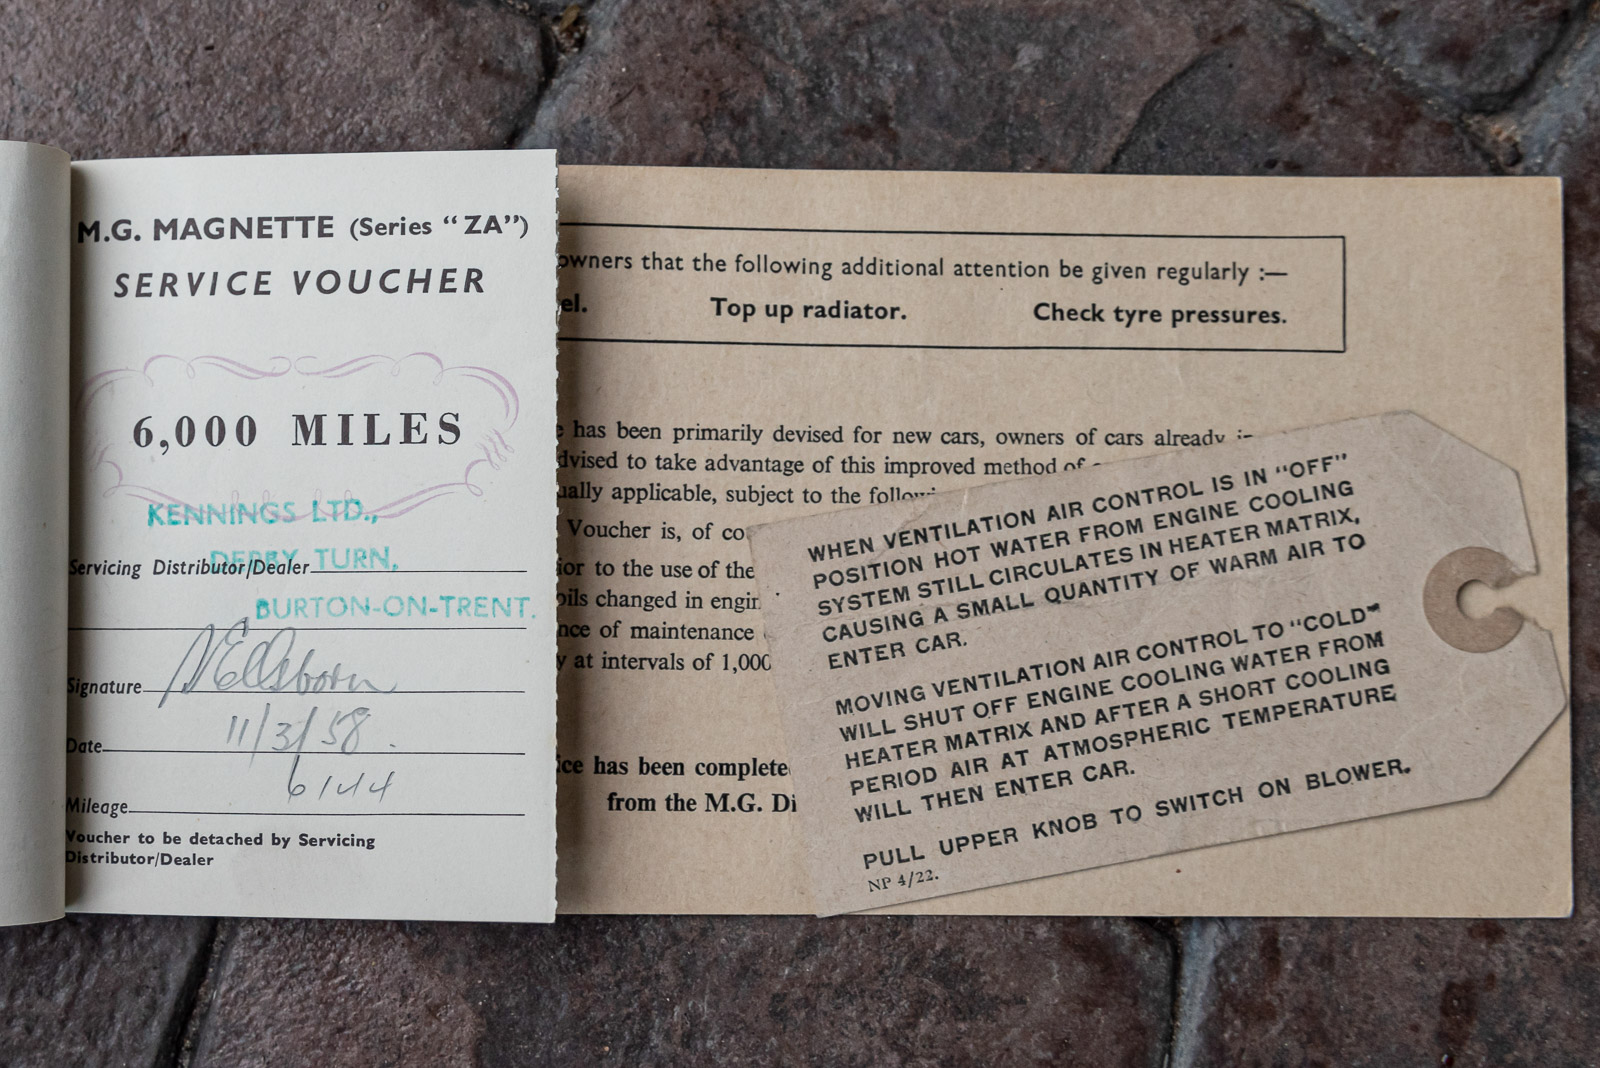 M.G. MAGNETTE (Series “ZA”)
SERVICE VOUCHER
6,000 MILES
KENNINGS LTD.,
DERBY TURN,
Servicing Distributor/Dealer
BURTON-ON-TRENT.
Signature
Date 11/3/58.
Mileage 6144
Voucher to be detached by Servicing
Distributor/Dealer
owners that the following additional attention be given regularly :—
el. Top up radiator. Check tyre pressures.
has been primarily devised for new cars, owners of cars already
dvised to take advantage of this improved method of
ually applicable, subject to the
Voucher is, of
ior to the use of the
oils changed in
nce of maintenance
y at intervals of 1,000
ice has been complete
from the M.G. Di
WHEN VENTILATION AIR CONTROL IS IN “OFF”
POSITION HOT WATER FROM ENGINE COOLING
SYSTEM STILL CIRCULATES IN HEATER MATRIX,
CAUSING A SMALL QUANTITY OF WARM AIR TO
ENTER CAR.
MOVING VENTILATION AIR CONTROL TO “COLD”
WILL SHUT OFF ENGINE COOLING WATER FROM
HEATER MATRIX AND AFTER A SHORT COOLING
PERIOD AIR AT ATMOSPHERIC TEMPERATURE
WILL THEN ENTER CAR.
PULL UPPER KNOB TO SWITCH ON BLOWER.
NP 4/22.